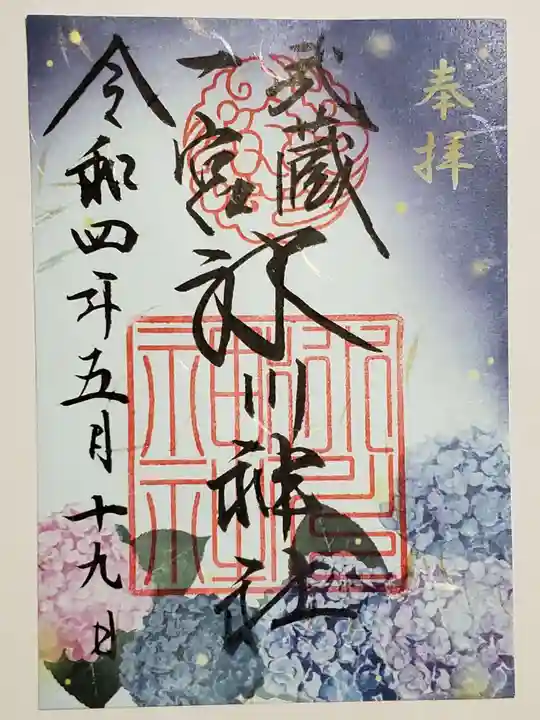 奉拝
武蔵
一宮
氷川神社
令和四年五月十九日